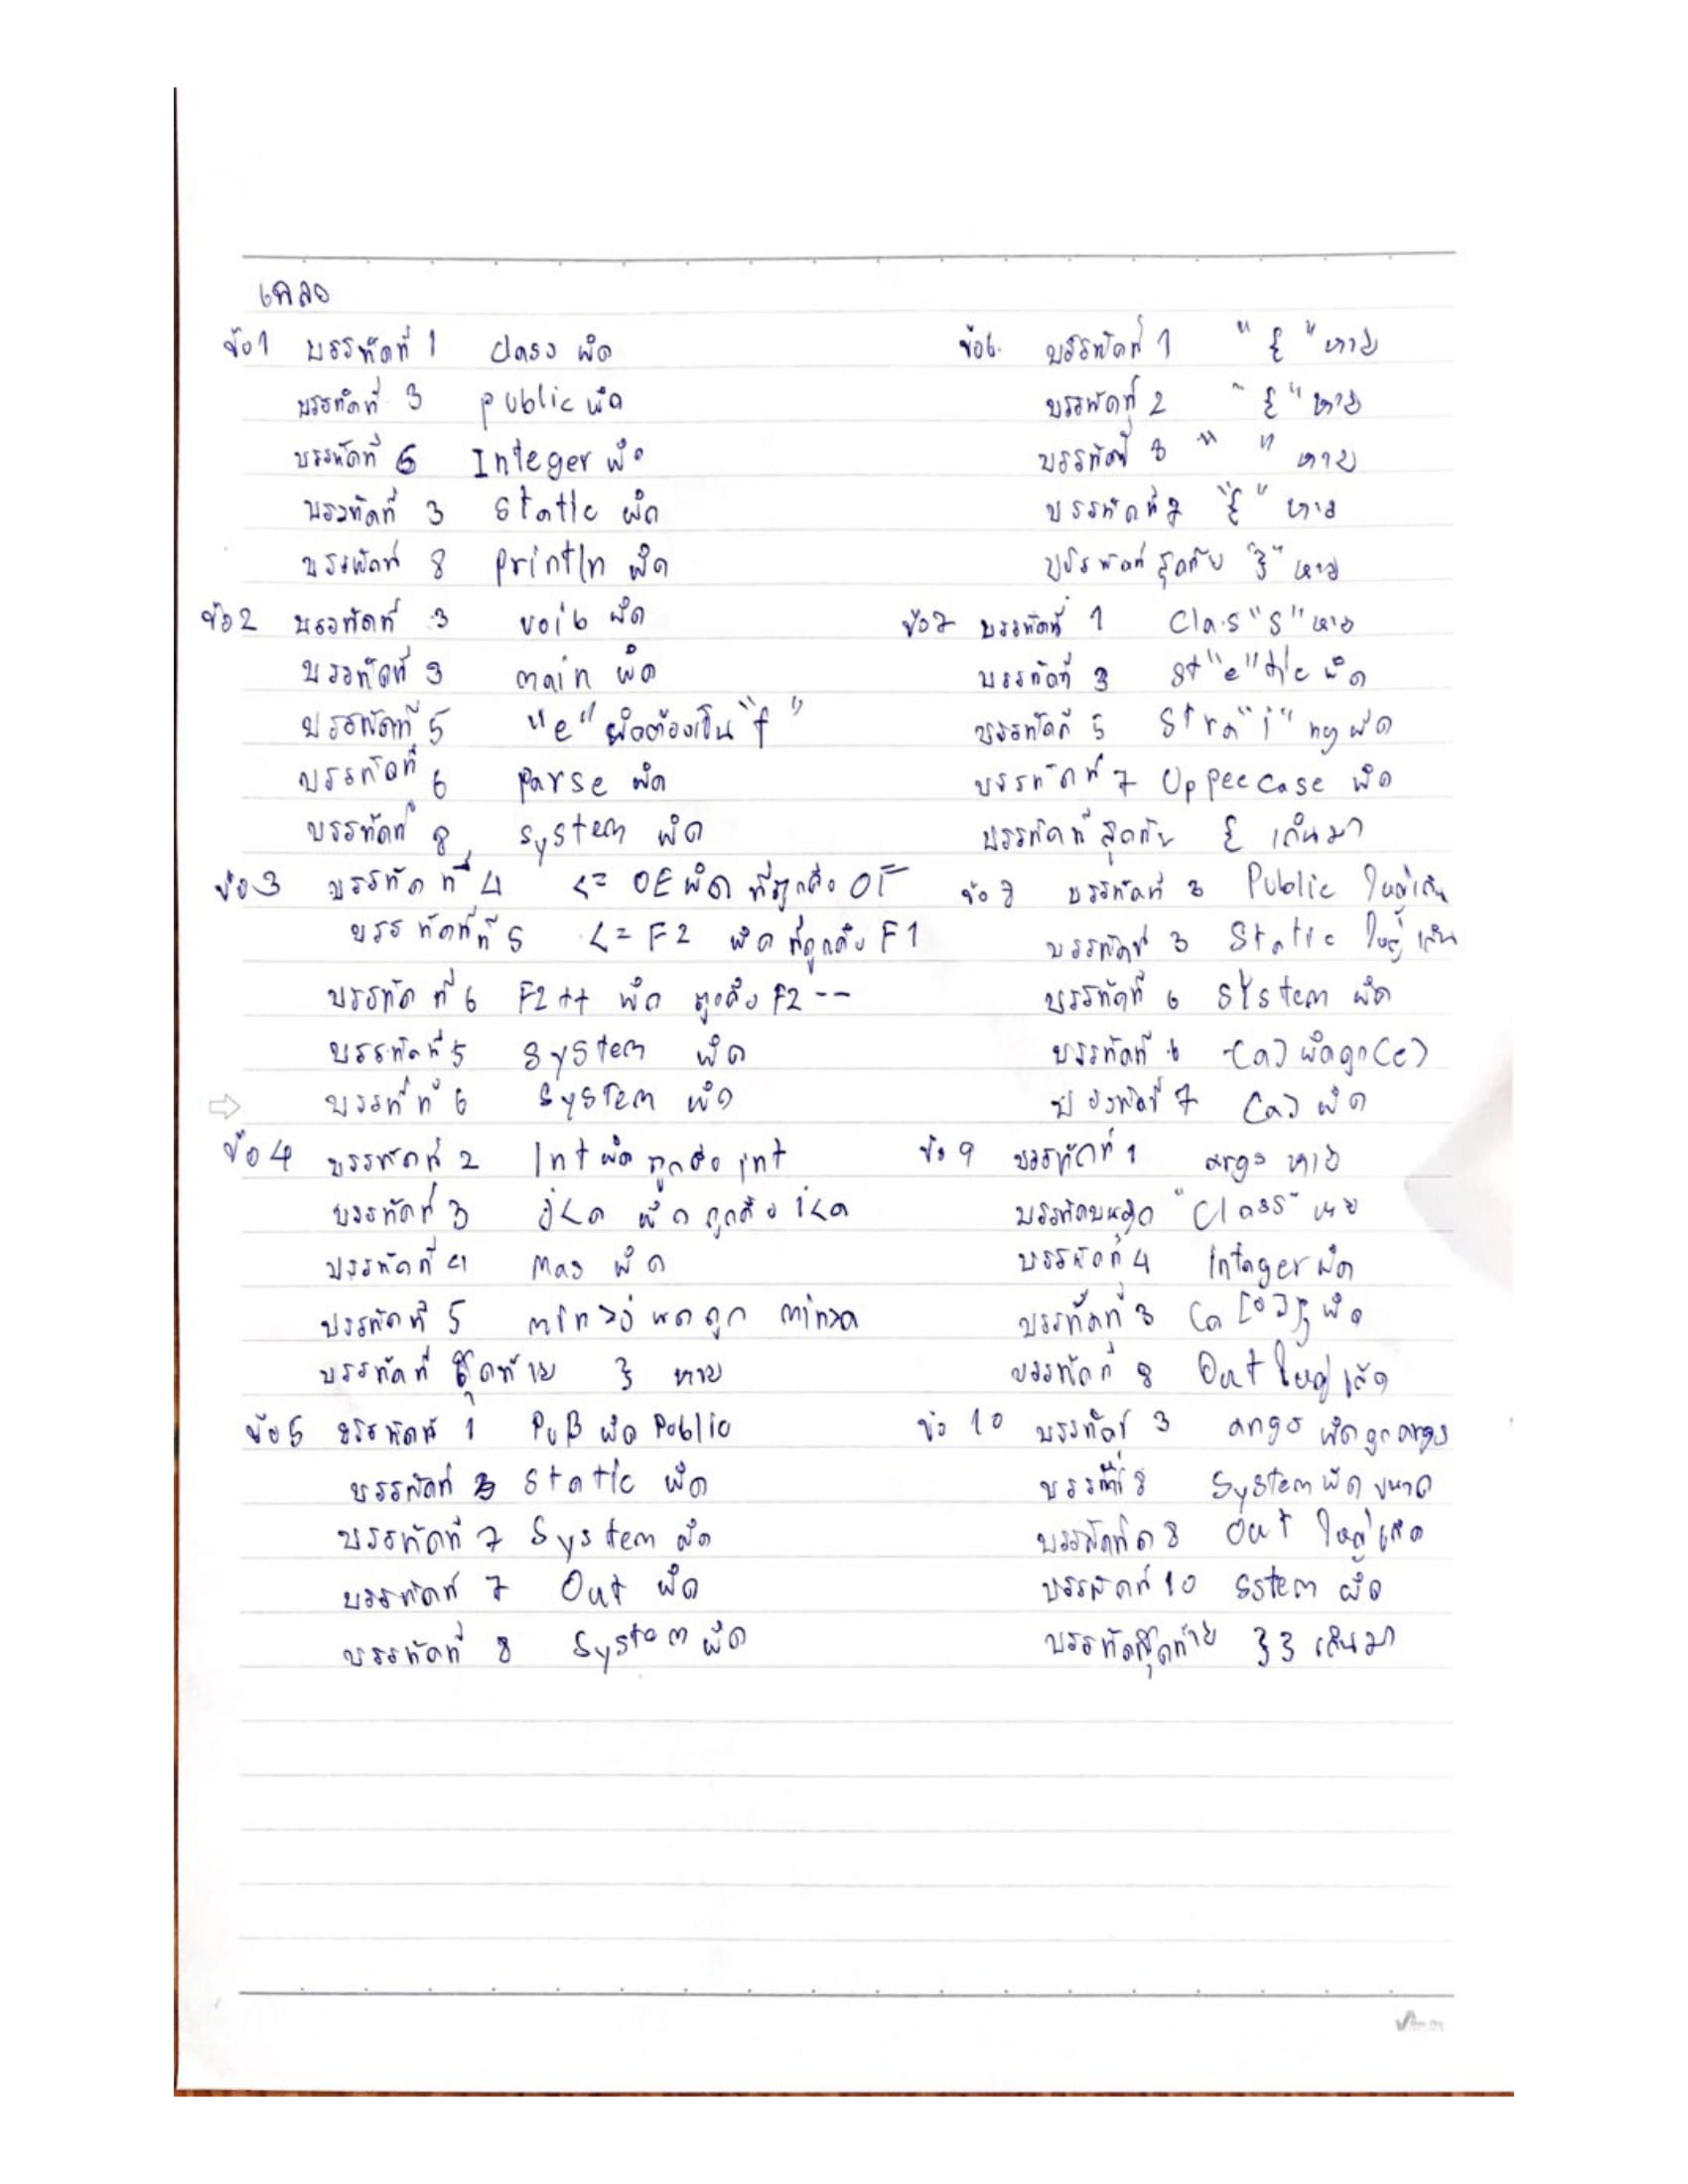 เฉลย
ข้อ1 บรรทัดที่ 1 class ผิด
บรรทัดที่ 3 public ผิด
บรรทัดที่ 6 Integer ผิด
บรรทัดที่ 3 static ผิด
บรรทัดที่ 8 println ผิด
ข้อ2 บรรทัดที่ 3 voib ผิด
บรรทัดที่ 3 main ผิด
บรรทัดที่ 5 "e" ผิดต้องเป็น "f"
บรรทัดที่ 6 parse ผิด
บรรทัดที่ 8 system ผิด
ข้อ3 บรรทัดที่ 4 <= OE ผิด ที่ถูกคือ OF
บรรทัดที่ที่ 5 <= F2 ผิด ที่ถูกคือ F1
บรรทัดที่ 6 F2++ ผิด ถูกคือ F2--
บรรทัดที่ 5 System ผิด
บรรที่ที่ 6 System ผิด
ข้อ4 บรรทัดที่ 2 Int ผิด ถูกคือ int
บรรทัดที่ 3 j<a ผิด ถูกคือ i<a
บรรทัดที่ 4 Mas ผิด
บรรทัดที่ 5 min>j ผิด ถูก min>a
บรรทัดที่ สุดท้าย } หาย
ข้อ5 บรรทัดที่ 1 PuB ผิด Public
บรรทัดที่ 3 Static ผิด
บรรทัดที่ 7 System ผิด
บรรทัดที่ 7 Out ผิด
บรรทัดที่ 8 System ผิด
ข้อ6. บรรทัดที่ 1 "{" หาย
บรรทัดที่ 2 "{" หาย
บรรทัดที่ 8 " " หาย
บรรทัดที่ 7 "{" หาย
บรรทัดที่ สุดท้าย "}" หาย
ข้อ7 บรรทัดที่ 1 Clas"S" หาย
บรรทัดที่ 3 St"e"tic ผิด
บรรทัดที่ 5 Stra"i"ng ผิด
บรรทัดที่ 7 UppeeCase ผิด
บรรทัดที่ สุดท้าย { เกินมา
ข้อ8 บรรทัดที่ 3 Public ใหญ่เกิน
บรรทัดที่ 3 Static ใหญ่เกิน
บรรทัดที่ 6 SYstem ผิด
บรรทัดที่ 6 (a) ผิดถูก(c)
บรรทัดที่ 7 (a) ผิด
ข้อ 9 บรรทัดที่ 1 args หาย
บรรทัดบนสุด "Class" หาย
บรรทัดที่ 4 Intager ผิด
บรรทัดที่ 3 (a[0]); ผิด
บรรทัดที่ 8 Out ใหญ่เกิด
ข้อ 10 บรรทัดที่ 3 angs ผิดถูกargs
บรรทัดที่ 8 System ผิด ขนาด
บรรทัดที่ 8 Out ใหญ่เกิด
บรรทัดที่ 10 Sstem ผิด
บรรทัดสุดท้าย }} เกินมา